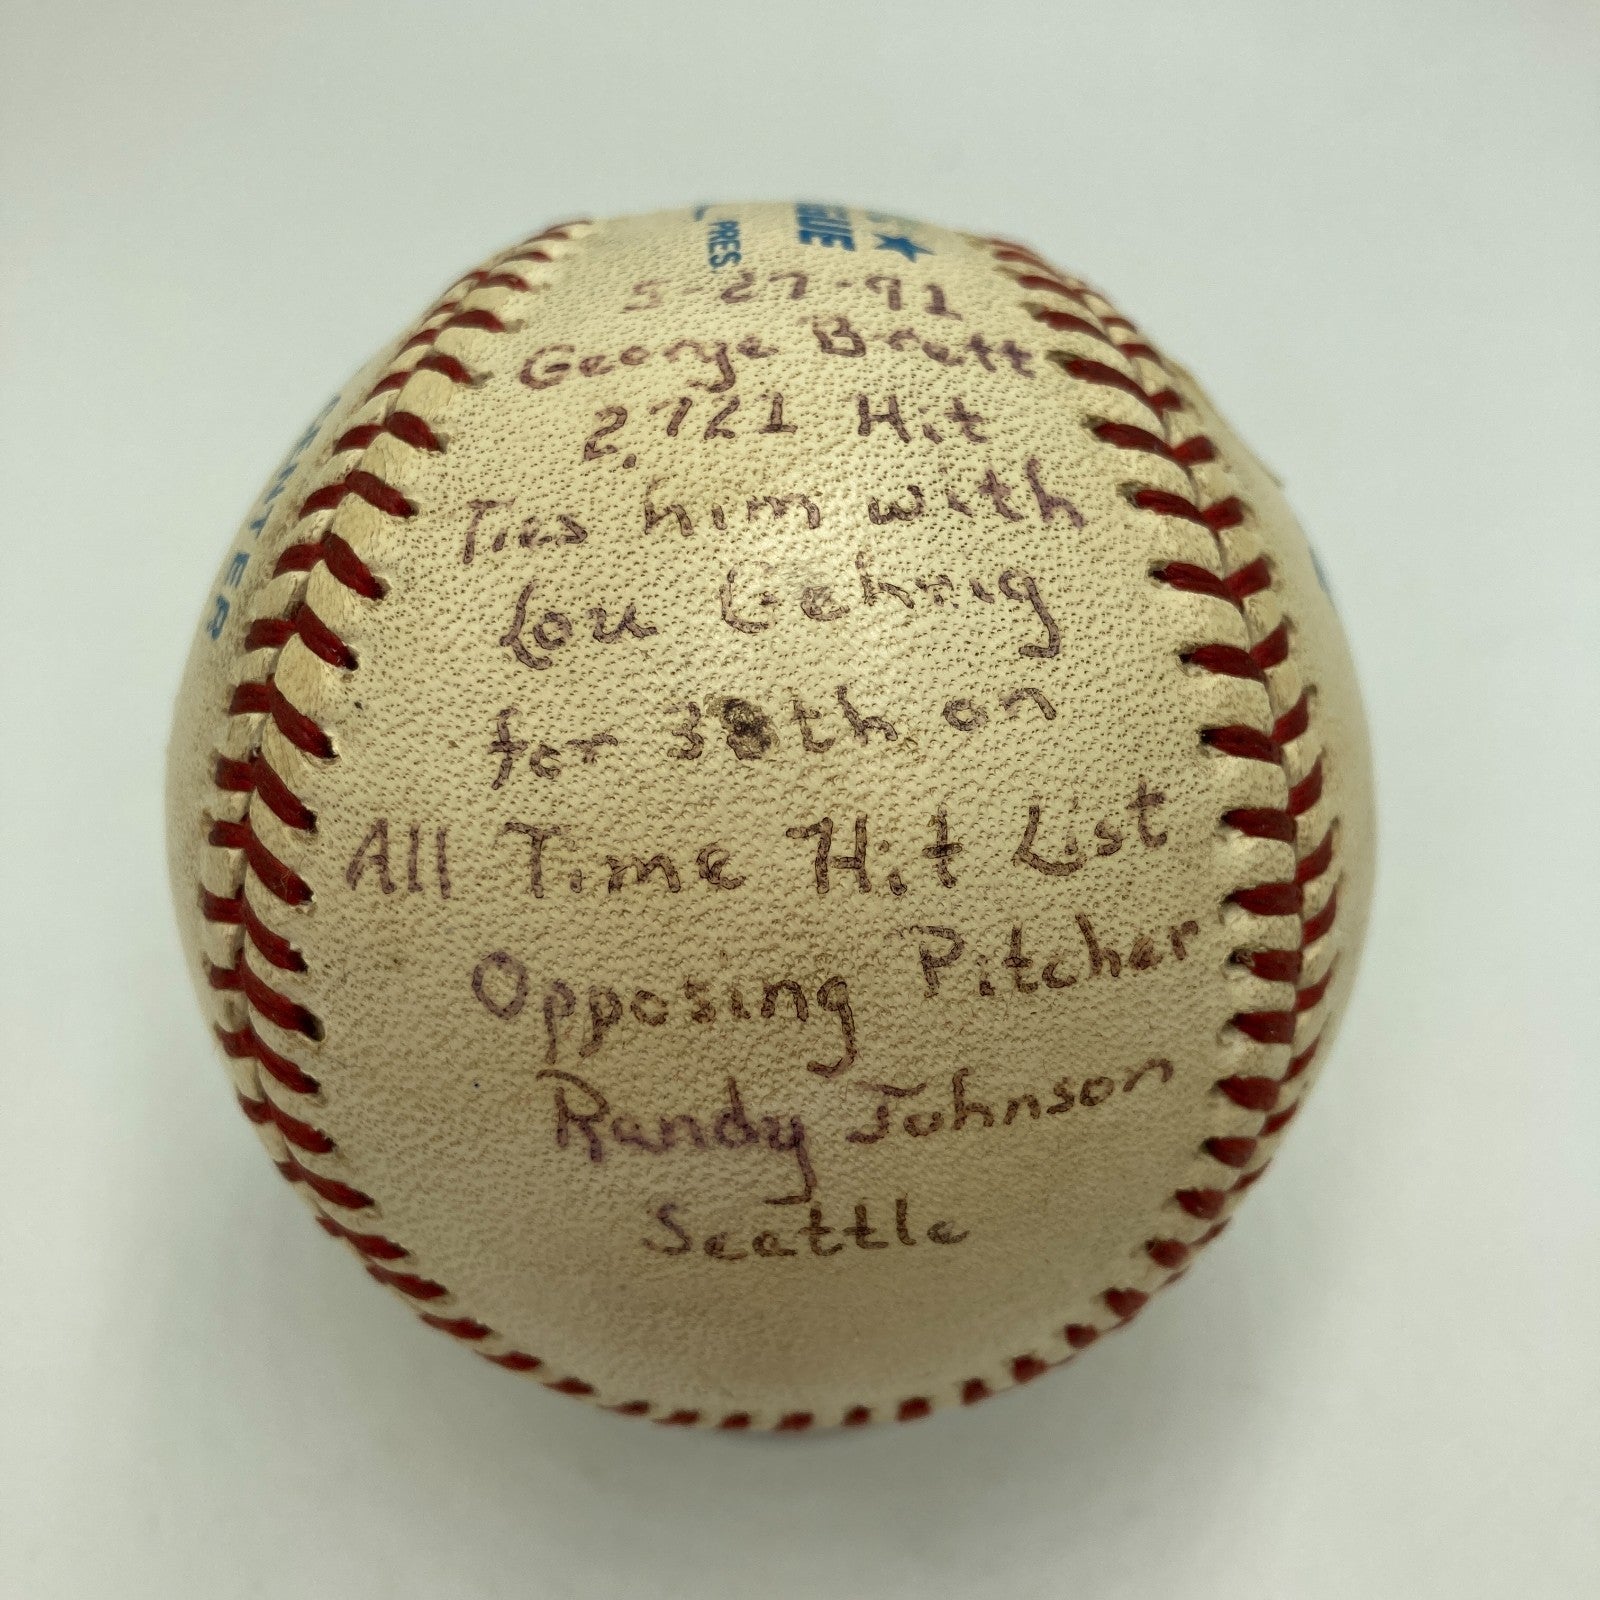 GUE
PRES.
5-27-92
George Brett
2,721 Hit
Ties him with
Lou Gehrig
for 38th on
All Time Hit List
Opposing Pitcher
Randy Johnson
Seattle